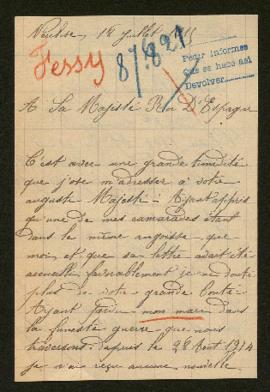 Juillet
Fessy
87.821
Pedir informes
que se hace asi
Devolver
A Sa Majesté Roi D'Espagne
C'est avec une grande timidité
que j'ose m'adresser à votre
auguste Majesté. Ayant appris
qu'une de mes camarades étant
dans la même angoisse que
moi, et que sa lettre avait été
accueillie favorablement je ne doute
plus de votre grande bonté.
Ayant perdu mon mari dans
la funeste guerre que nous
traversons. Depuis le 28 Aout 1914
je n'ai reçu aucune nouvelle